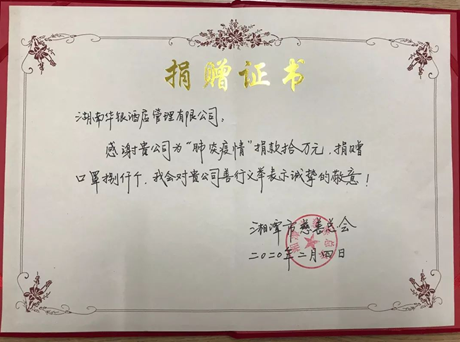 捐赠证书
湖南华银酒店管理有限公司,
感谢贵公司为“肺炎疫情”捐款拾万元,捐赠
口罩捌仟个,我会对贵公司善行义举表示诚挚的敬意!
湘潭市慈善总会
二0二0年二月四日